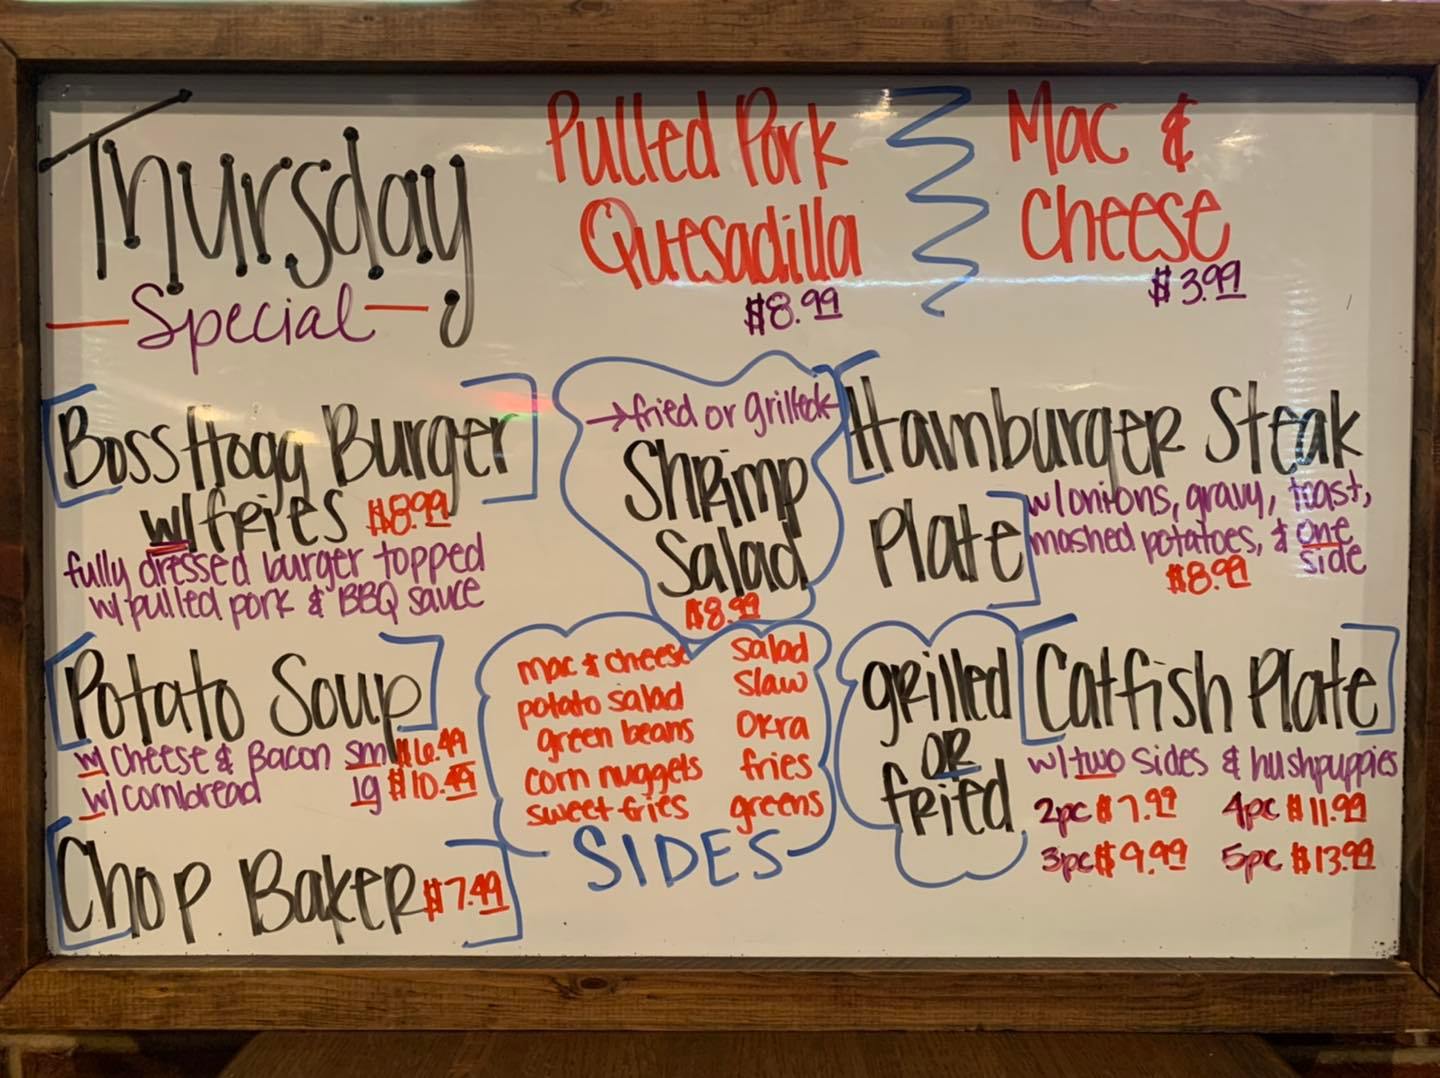 Thursday
Special
Pulled Pork
Quesadilla
$8.99
Mac &
Cheese
$3.99
Boss Hogg Burger
w/ fries $8.99
fully dressed burger topped
w/ pulled pork & BBQ sauce
→ fried or grilled ←
Shrimp
Salad
$8.99
Hamburger Steak
Plate
w/ onions, gravy, toast,
mashed potatoes, & one
side
$8.99
Potato Soup
w/ cheese & Bacon sm $6.49
w/ cornbread lg $10.49
Chop Baker $7.49
mac & cheese
potato salad
green beans
corn nuggets
sweet fries
salad
slaw
okra
fries
greens
SIDES
grilled
or
fried
Catfish Plate
w/ two sides & hushpuppies
2pc $7.99 4pc $11.99
3pc $9.99 5pc $13.99